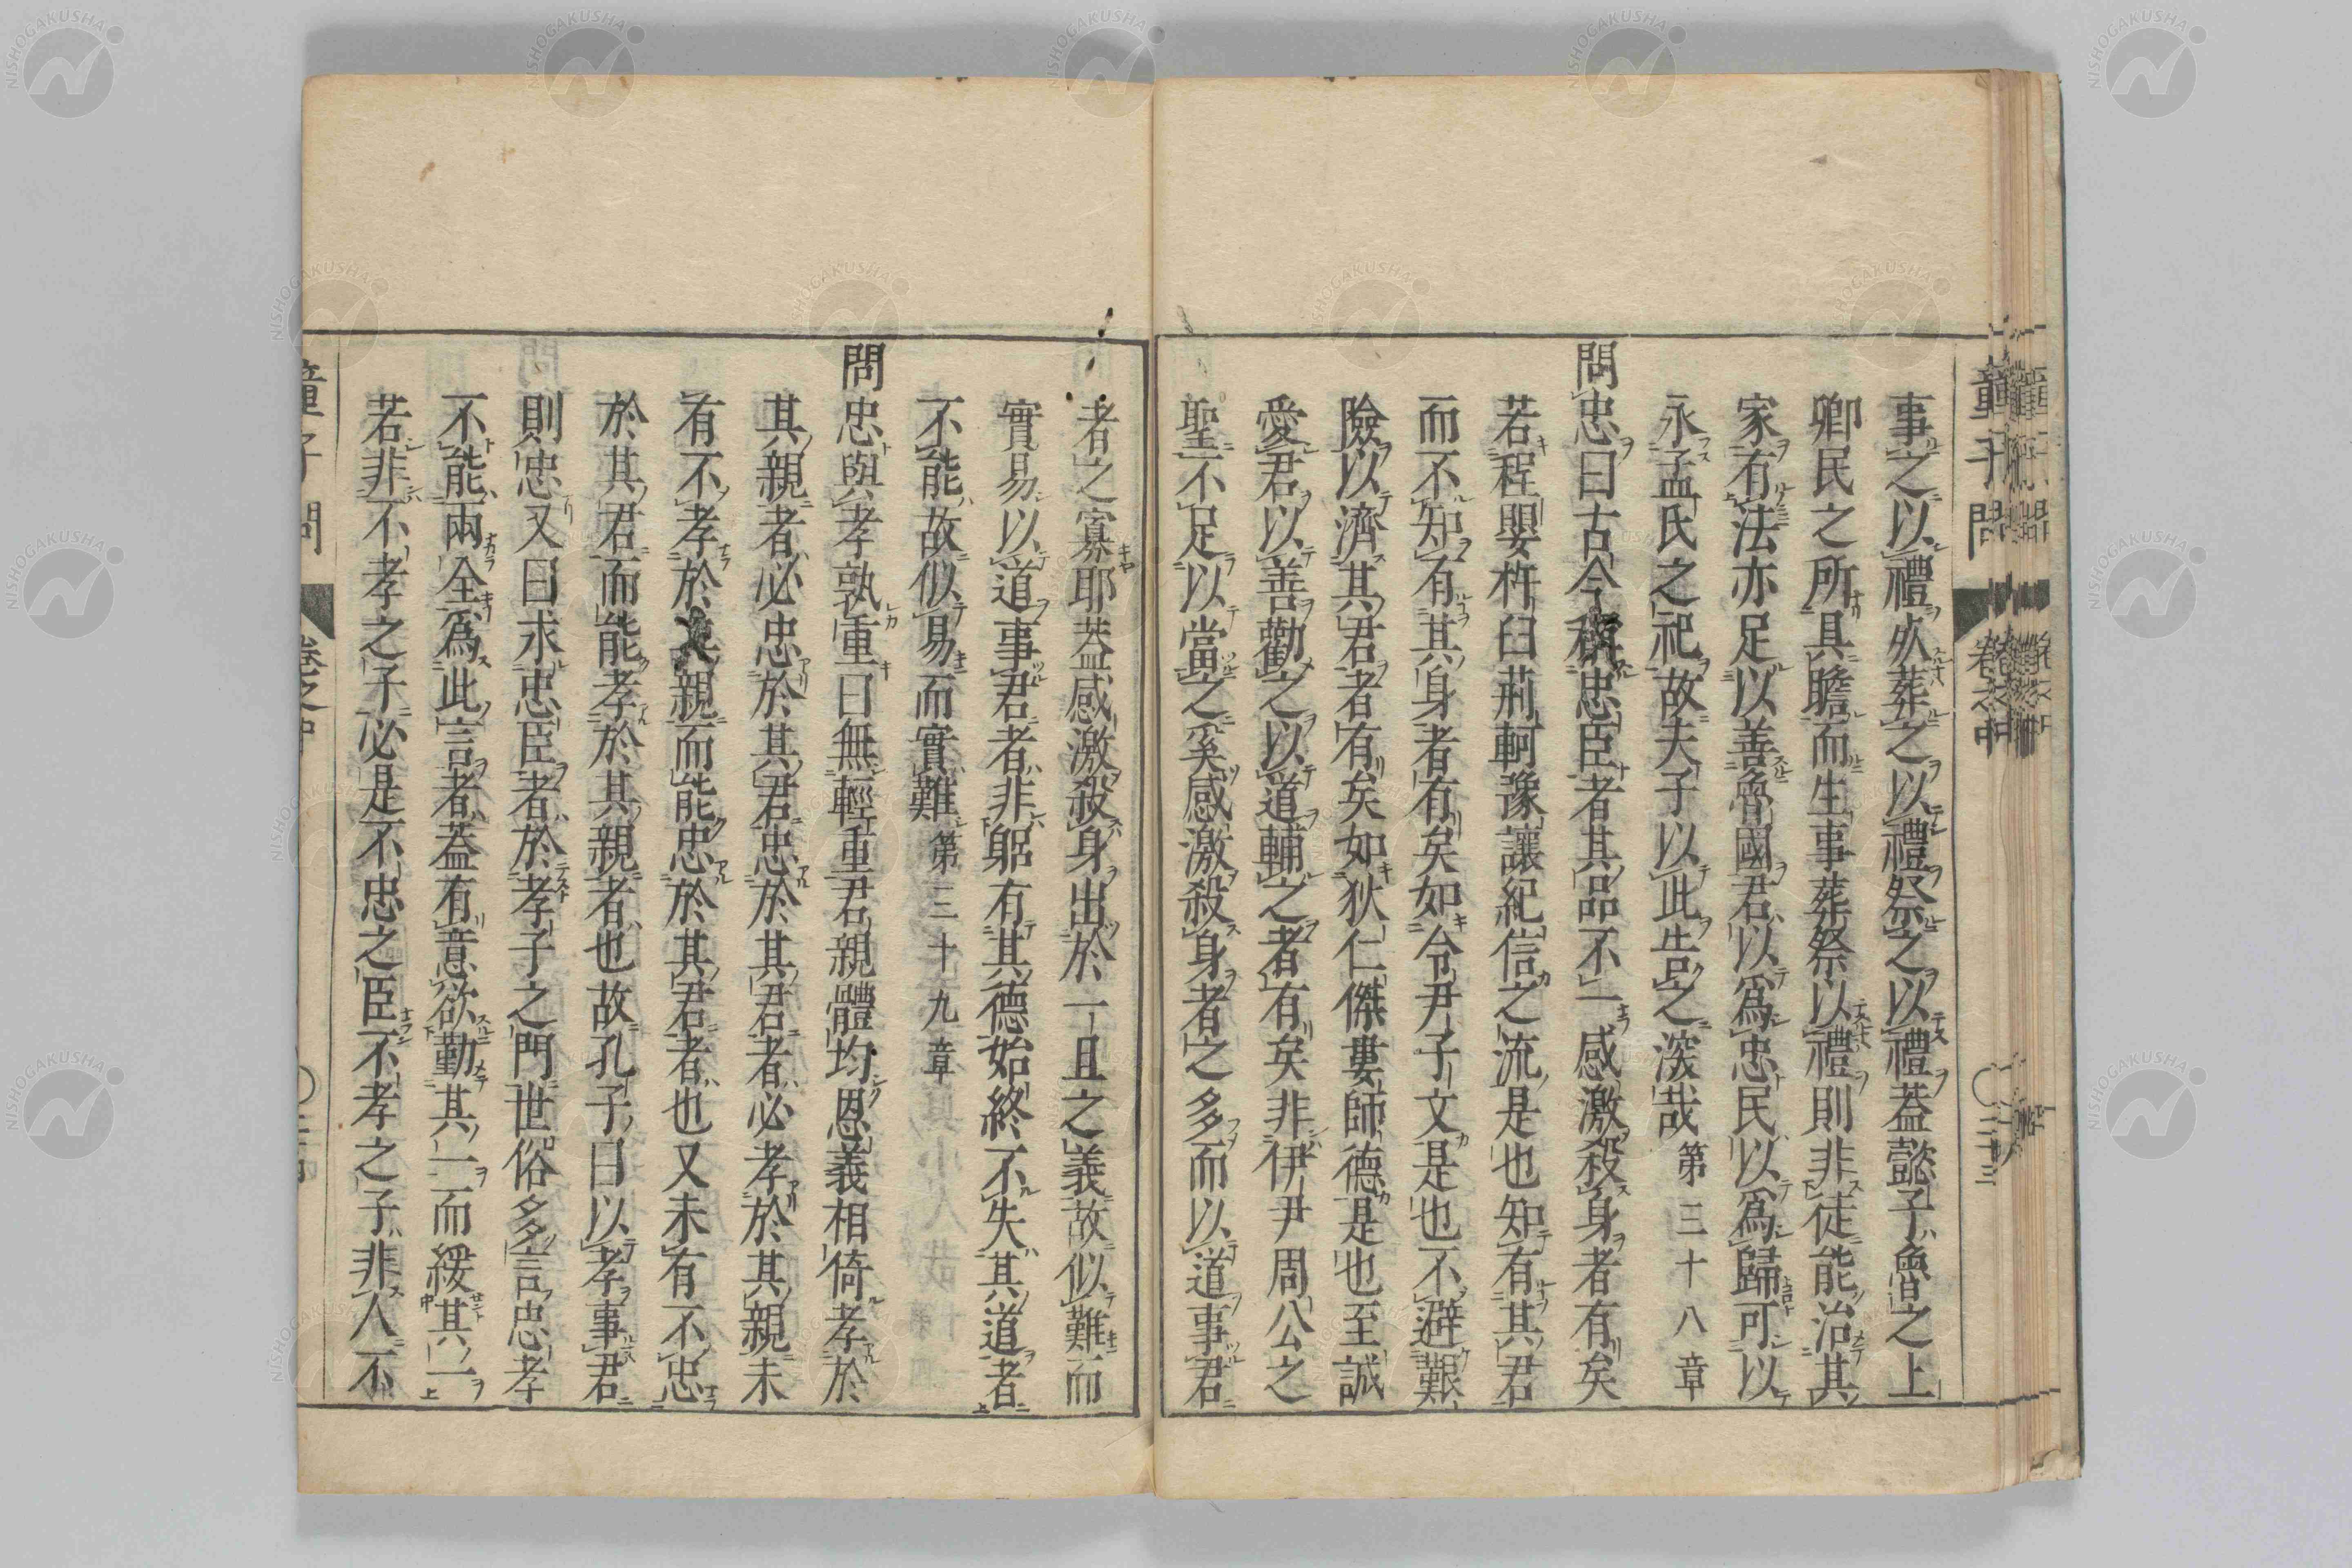 童子問 卷之中 〇二十三
事之以禮死葬之以禮祭之以禮蓋懿子魯之上
卿民之所具瞻而生事葬祭以禮則非徒能治其
家有法亦足以善魯國君以爲忠民以爲歸可以
永孟氏之祀故夫子以此告之深哉 第三十八章
問忠曰古今稱忠臣者其品不一感激殺身者有矣
若程嬰杵臼荊軻豫讓紀信之流是也知有其君
而不知有其身者有矣如令尹子文是也不避艱
險以濟其君者有矣如狄仁傑婁師德是也至誠
愛君以善勸之以道輔之者有矣非伊尹周公之
聖不足以當之奚感激殺身者之多而以道事君
者之寡耶蓋感激殺身出於一旦之義故似難而
實易以道事君者非躬有其德始終不失其道者
不能故似易而實難 第三十九章
問忠與孝孰重曰無輕重君親體均恩義相倚孝於
其親者必忠於其君忠於其君者必孝於其親未
有不孝於其親而能忠於其君者也又未有不忠
於其君而能孝於其親者也故孔子曰以孝事君
則忠又曰求忠臣者於孝子之門世俗多言忠孝
不能兩全爲此言者蓋有意欲勤其一而緩其一
若非不孝之子必是不忠之臣不孝之子非人不
童子問 卷之中
NISHOGAKUSHA